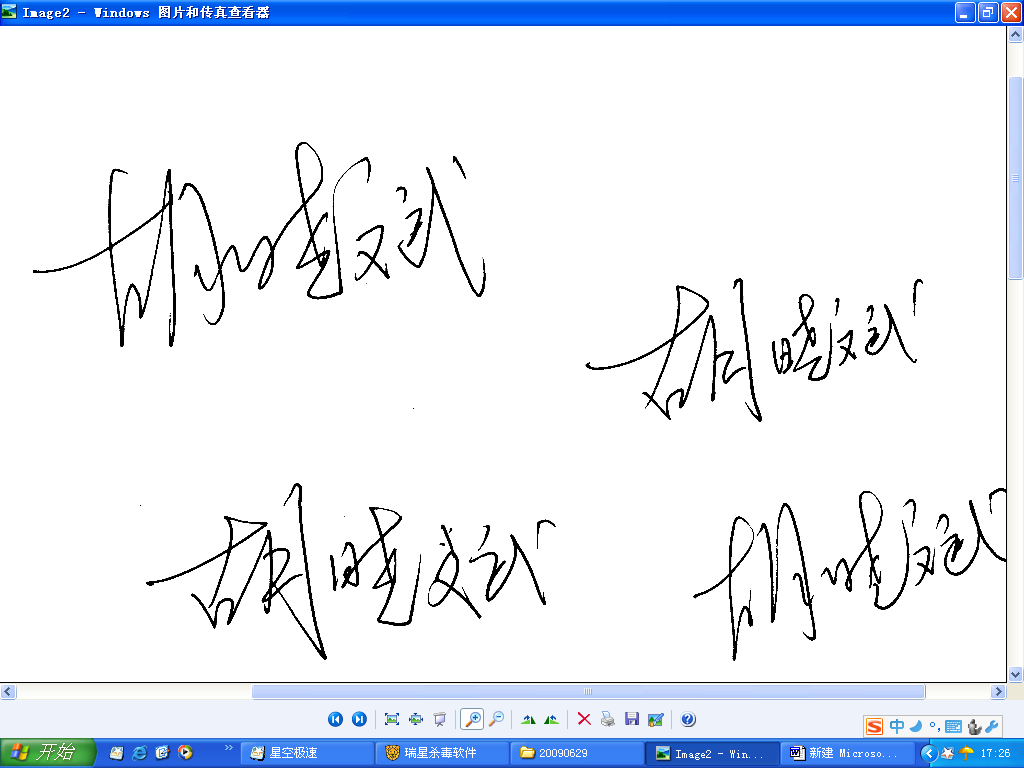 Image2 - Windows 图片和传真查看器
胡晓斌
胡晓斌
胡晓斌
胡晓斌
中
开始
星空极速
瑞星杀毒软件
20090629
Image2 - Win...
新建 Microso...
17:26